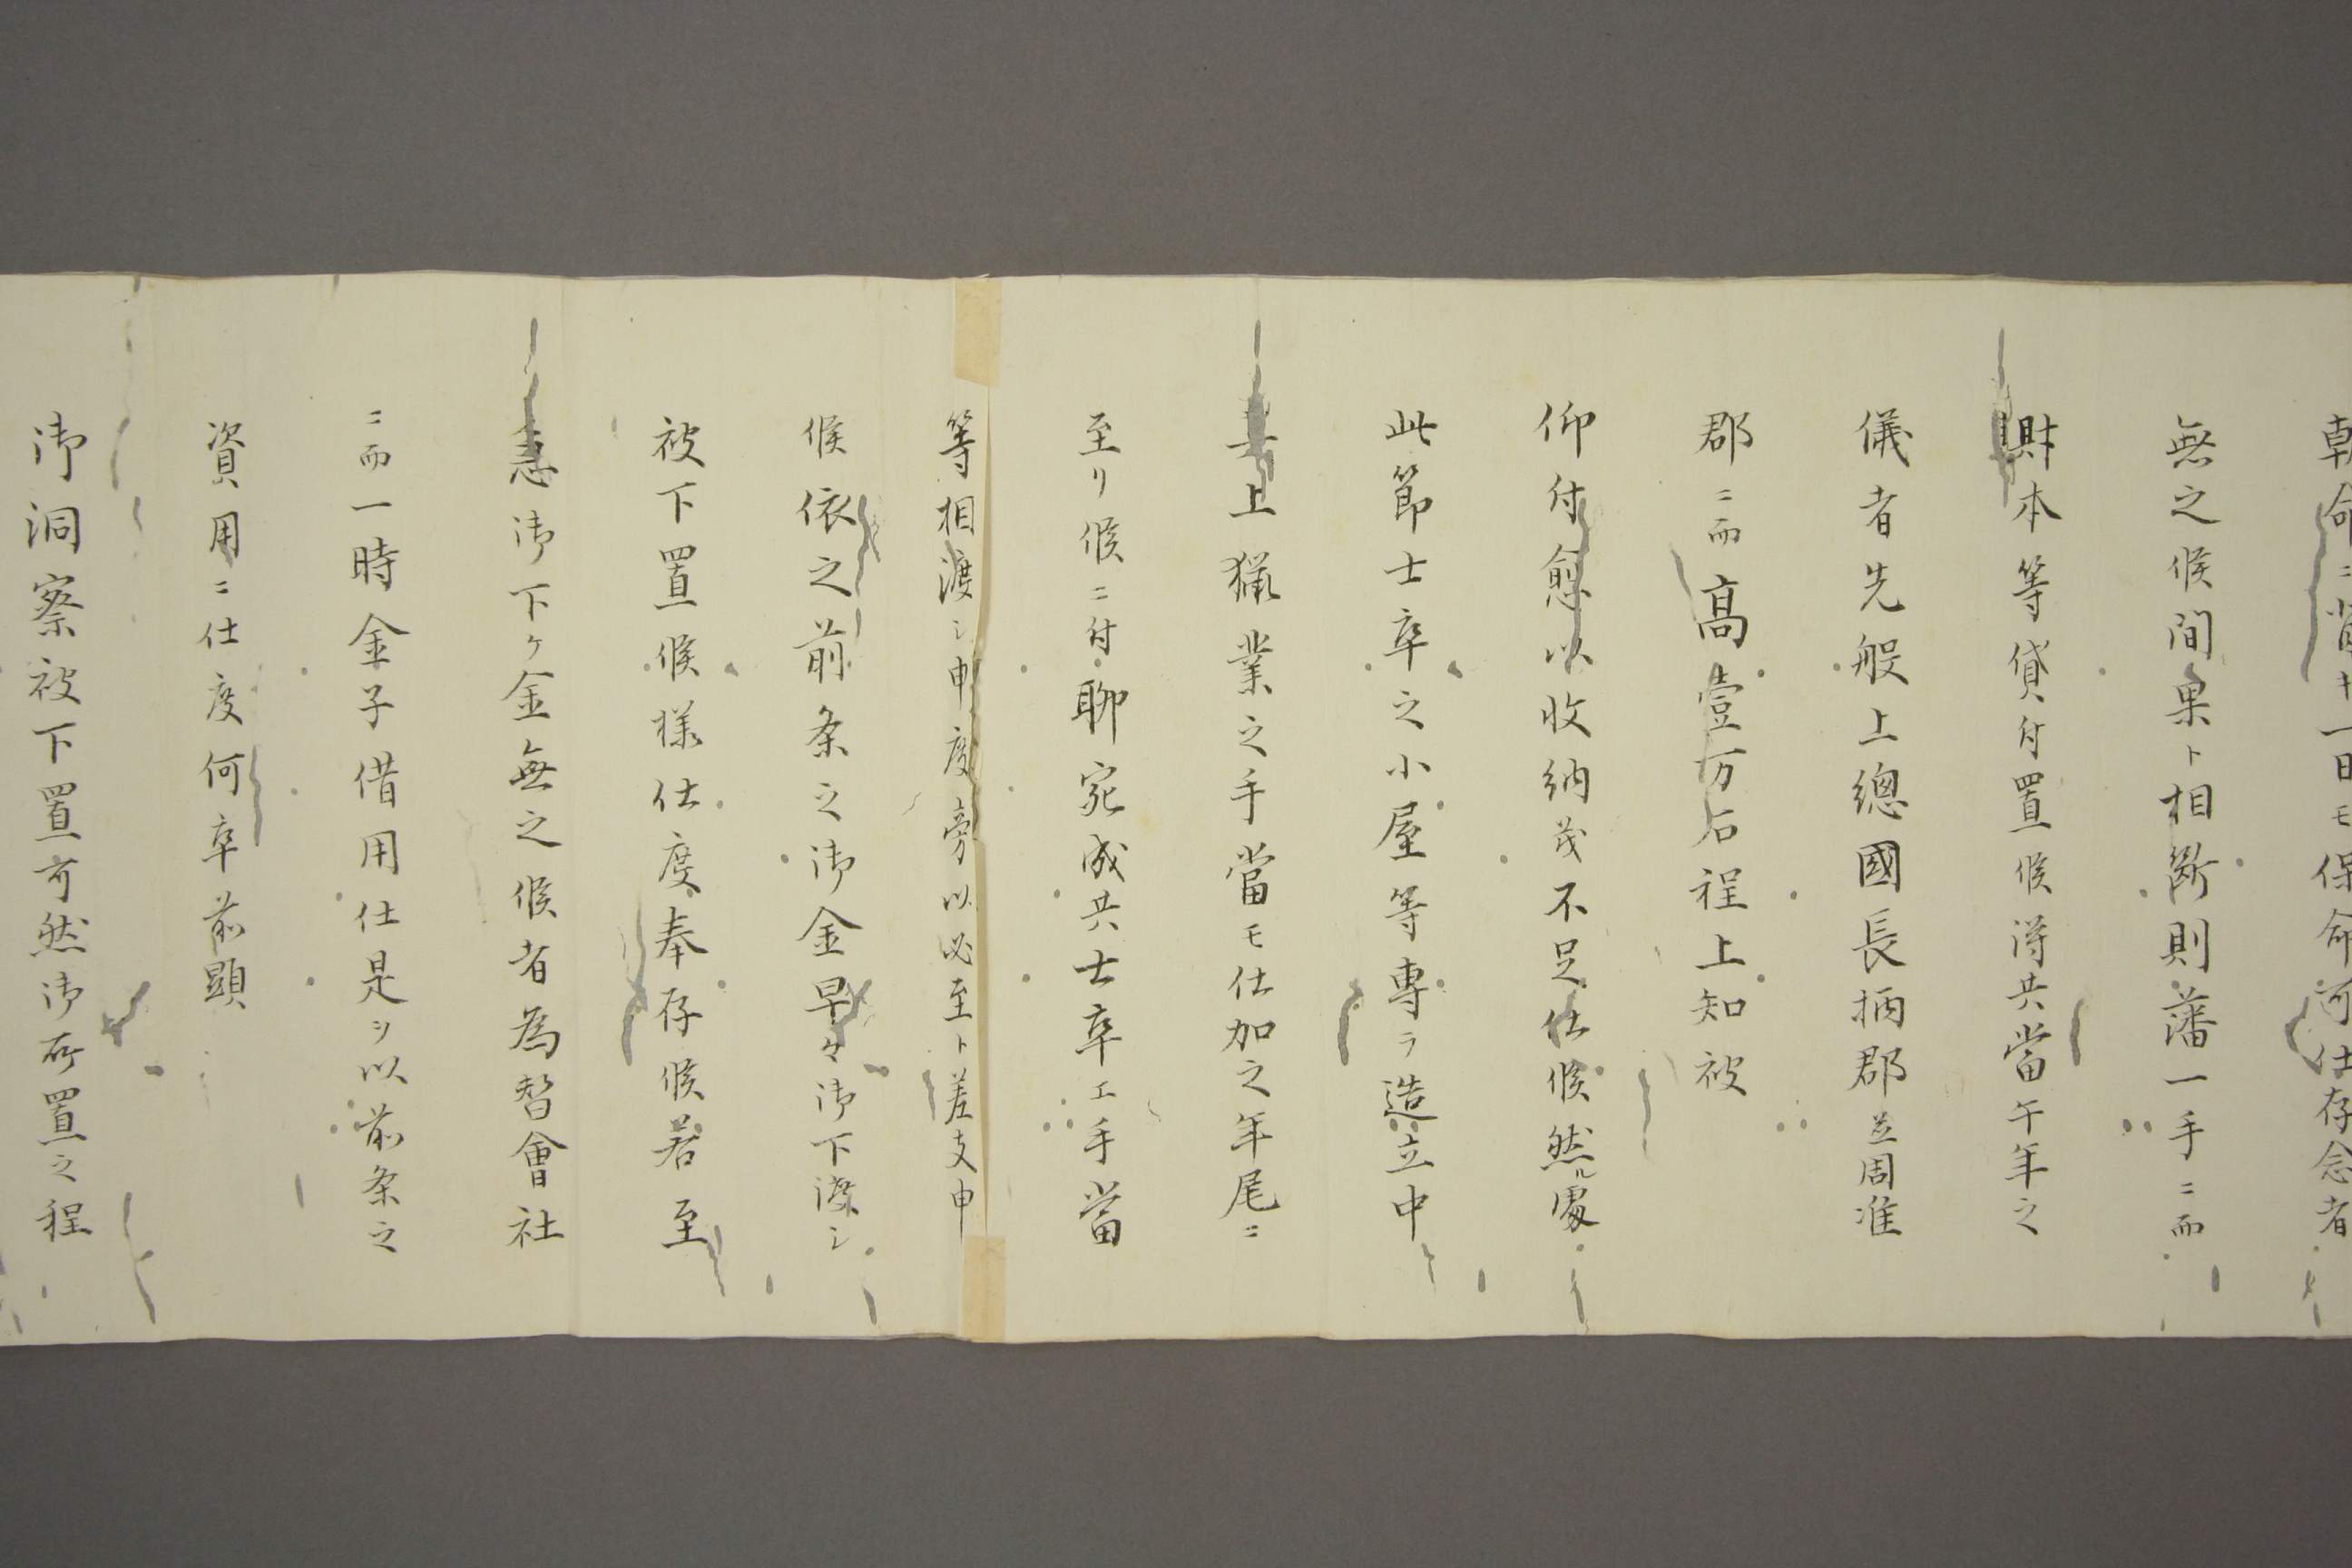 朝命ニ背キ一日モ保命可仕存念者
無之候間果ト相断則藩一手ニ而
財本等貸付置候得共當午年之
儀者先般上總國長柄郡並周准
郡ニ而高壹万石程上知被
仰付愈以收納茂不足仕候然ル處
此節士卒之小屋等専ラ造立中
其上獵業之手當モ仕加之年尾ニ
至リ候ニ付聊宛成共士卒エ手當
等相渡シ申度旁以必至ト差支申
候依之前条之御金早々御下渡シ
被下置候様仕度奉存候若至
急御下ケ金無之候者為替會社
ニ而一時金子借用仕是ヲ以前条之
資用ニ仕度何卒前顕
御洞察被下置可然御所置之程